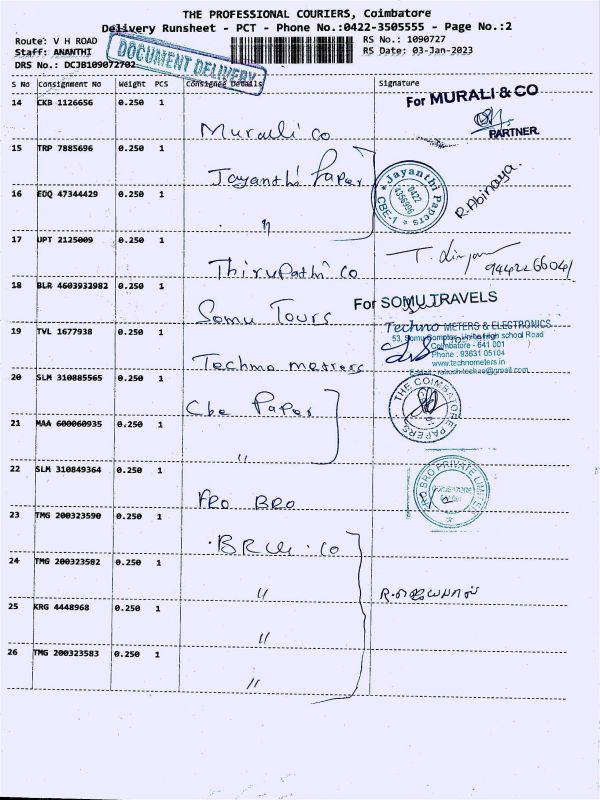 THE PROFESSIONAL COURIERS, Coimbatore
Delivery Runsheet - PCT - Phone No.:0422-3505555 - Page No.:2
Route: V H ROAD
RS No.: 1090727
Staff: ANANTHI
RS Date: 03-Jan-2023
DOCUMENT DELIVERY
DRS No.: DCJB109072702
S No Consignment No Weight PCS Consignee Details Signature
14 CKB 1126656 0.250 1
Murali Co
For MURALI & CO
PARTNER.
15 TRP 7885696 0.250 1
Jayanthi Paper
Jayanthi Papers
0422
4356996
CBE-1
R.Abinaya.
16 EDQ 47344429 0.250 1
"
17 UPT 2125009 0.250 1
Thirupathi Co
9442266041
18 BLR 4603932982 0.250 1
Somu Tours
For SOMU TRAVELS
19 TVL 1677938 0.250 1
Techno meters
Techno METERS & ELECTRONICS
53, Somu Complex, High school Road
Coimbatore - 641 001
Phone : 93631 05104
www.technometers.in
20 SLM 310885565 0.250 1
Cbe Paper
THE COIMBATORE PAPERS
21 MAA 600060935 0.250 1
"
22 SLM 310849364 0.250 1
PRO BRO
PRO BRO PRIVATE LIMITED
23 TMG 200323590 0.250 1
24 TMG 200323582 0.250 1
"
25 KRG 4448968 0.250 1
"
26 TMG 200323583 0.250 1
"